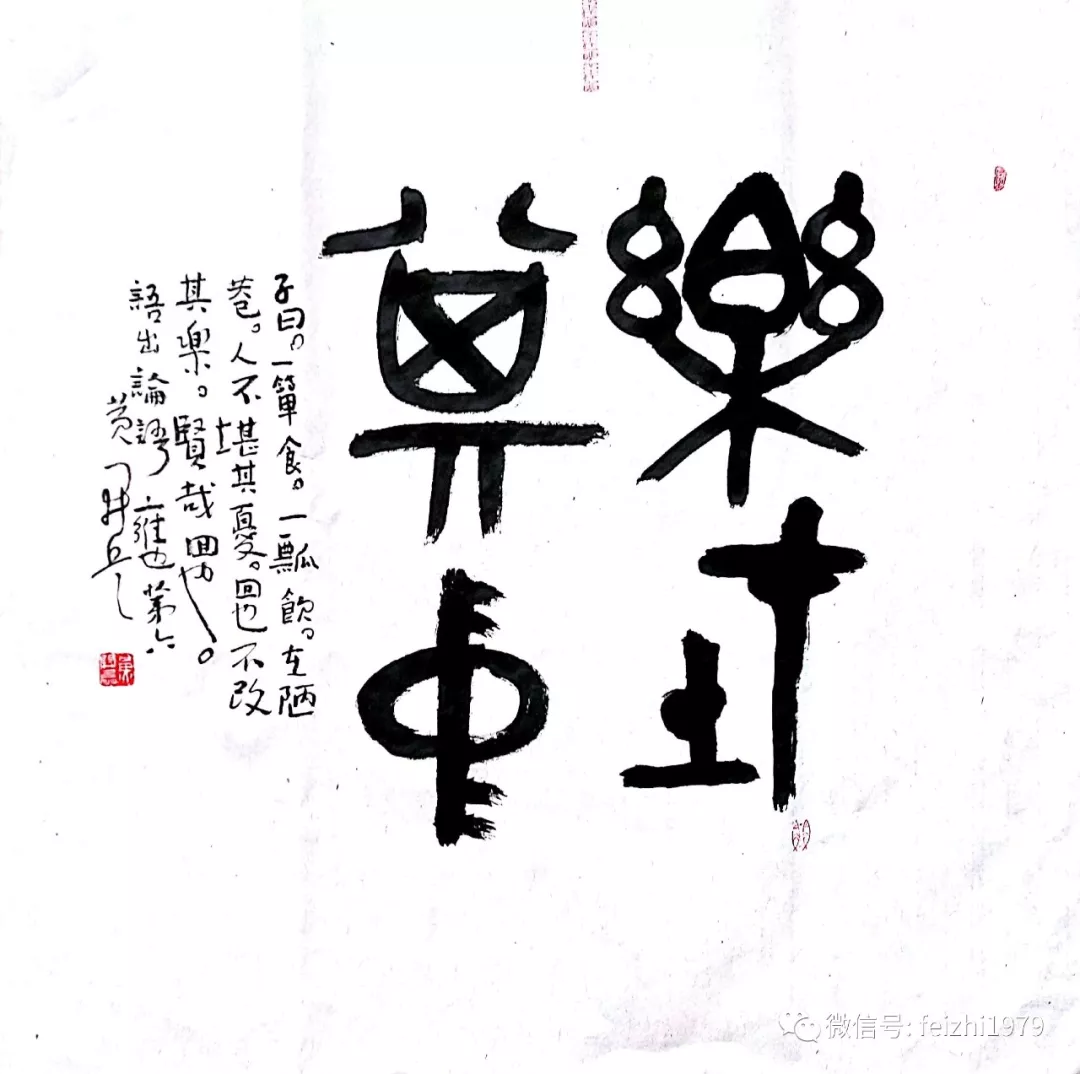 樂在
其中
子曰。一簞食。一瓢飲。在陋
巷。人不堪其憂。回也不改
其樂。賢哉回也。
語出論語雍也第六
微信号: feizhi1979